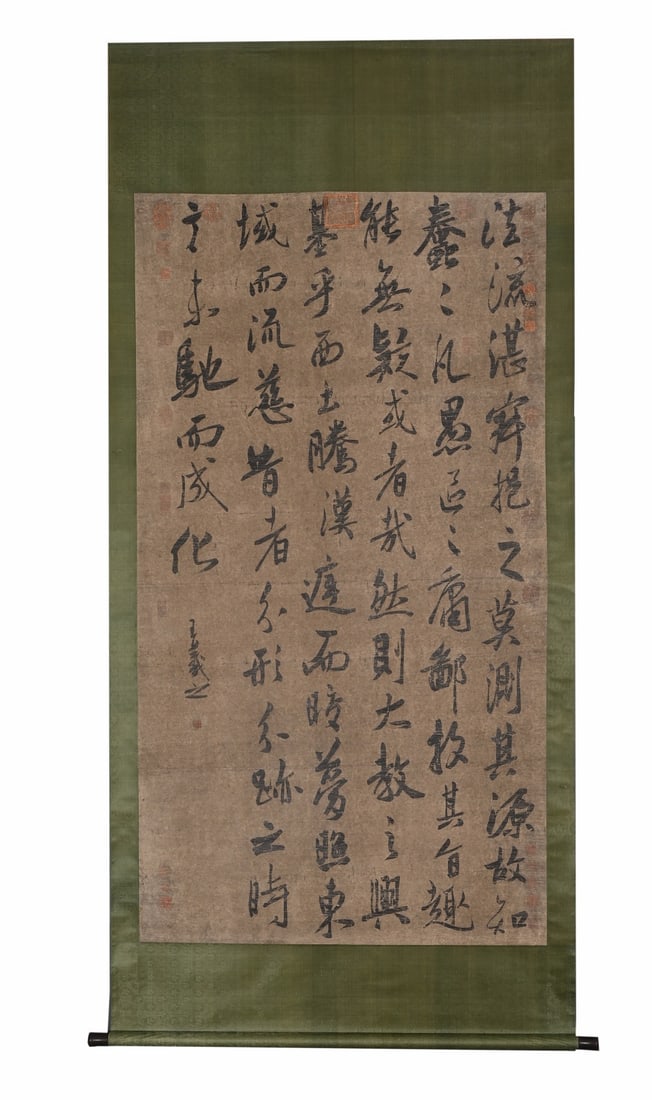 法流湛寂挹之莫測其源故知
蠢〻凡愚區〻庸鄙投其旨趣
能無疑或者哉然則大教之興
基乎西土騰漢庭而皎夢照東
域而流慈昔者分形分跡之時
言未馳而成化
王羲之